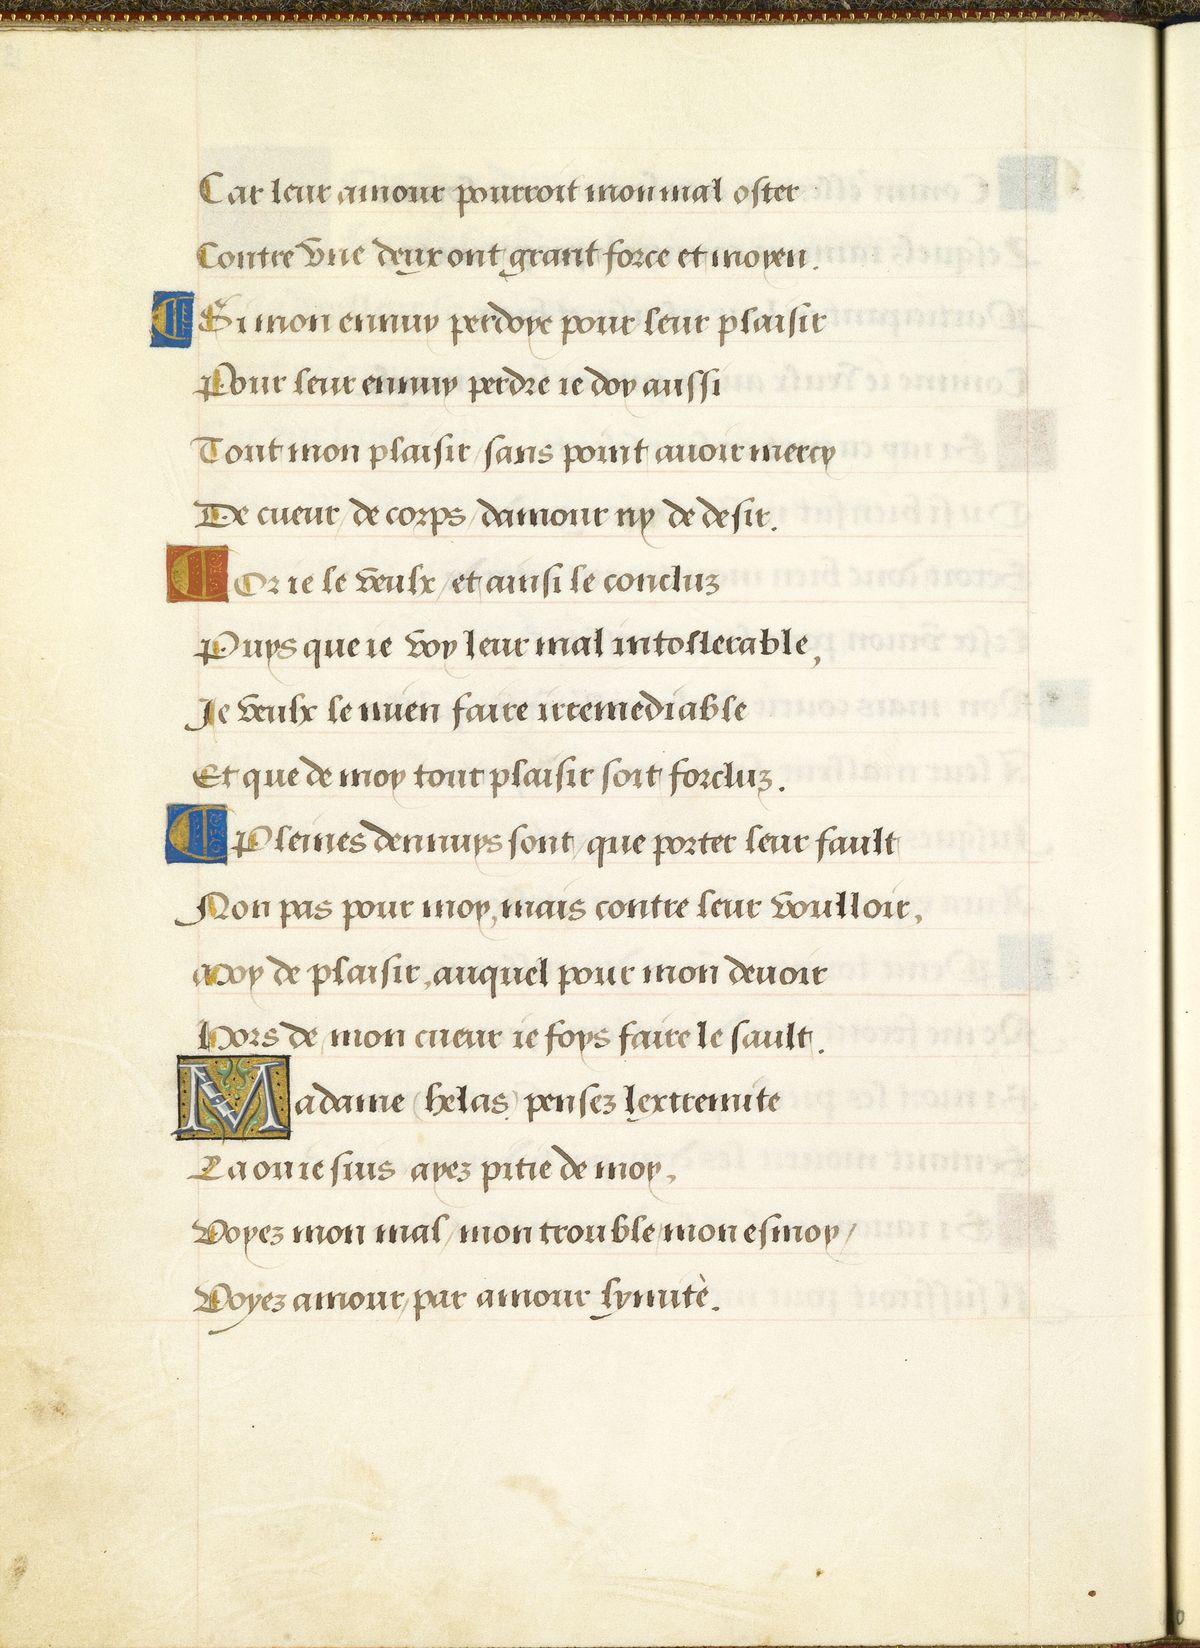 Car leur amour pourroit mon mal oster
Contre vne deux ont grant force et moyen.
Si mon ennuy perdoye pour leur plaisir
Pour leur ennuy perdre ie doy aussi
Tout mon plaisir / sans point auoir mercy
De cueur / de corps / damour ny de desir.
Or ie le veulx / et ainsi le concluz
Puys que ie voy leur mal intollerable,
Je veulx le mien faire irremediable
Et que de moy tout plaisir soit forcluz.
Pleines dennuys sont / que porter leur fault
Non pas pour moy, mais contre leur voulloir,
A moy de plaisir, auquel pour mon deuoir
Hors de mon cueur ie foys faire le sault.
Madame (helas) pensez lextremite
La ou ie suis ayez pitie de moy,
Voyez mon mal / mon trouble / mon esmoy /
Voyez amour / par amour lymitè.